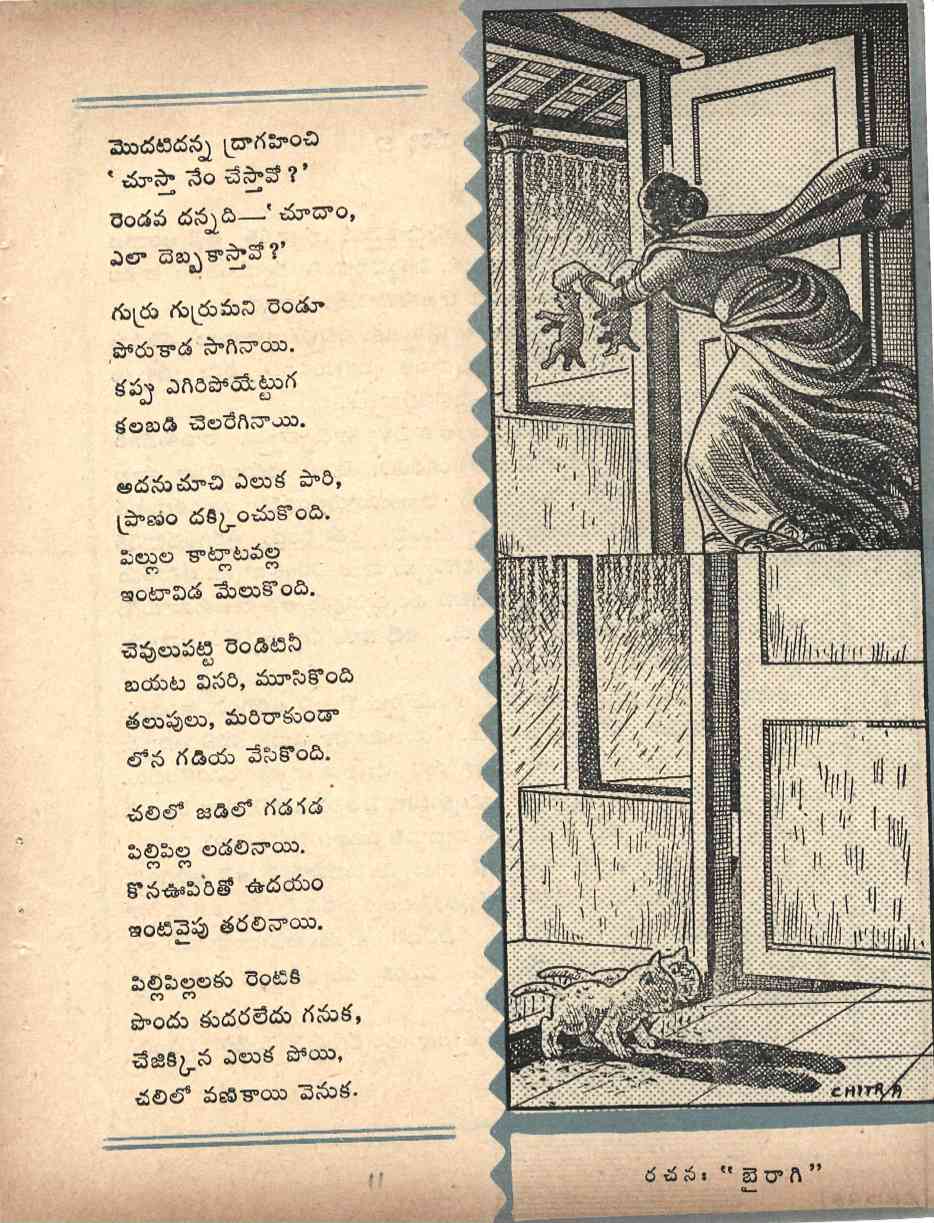 మొదటిదన్న ద్రాగహించి
‘చూస్తా నేం చేస్తావో?’
రెండవ దన్నది—‘చూదాం,
ఎలా దెబ్బకాస్తావో?’
గుర్రు గుర్రుమని రెండూ
పోరుకాడ సాగినాయి.
కప్పు ఎగిరిపోయేట్టుగ
కలబడి చెలరేగినాయి.
అదనుచూచి ఎలుక పారి,
ప్రాణం దక్కించుకొంది.
పిల్లుల కాట్లాటవల్ల
ఇంటావిడ మేలుకొంది.
చెవులుపట్టి రెండిటినీ
బయట విసరి, మూసికొంది
తలుపులు, మరిరాకుండా
లోన గడియ వేసికొంది.
చలిలో జడిలో గడగడ
పిల్లిపిల్ల లడలినాయి.
కొనఊపిరితో ఉదయం
ఇంటివైపు తరలినాయి.
పిల్లిపిల్లలకు రెంటికి
పొందు కుదరలేదు గనుక,
చేజిక్కిన ఎలుక పోయి,
చలిలో వణికాయి వెనుక.
CHITRA
11
రచన: “బైరాగి”